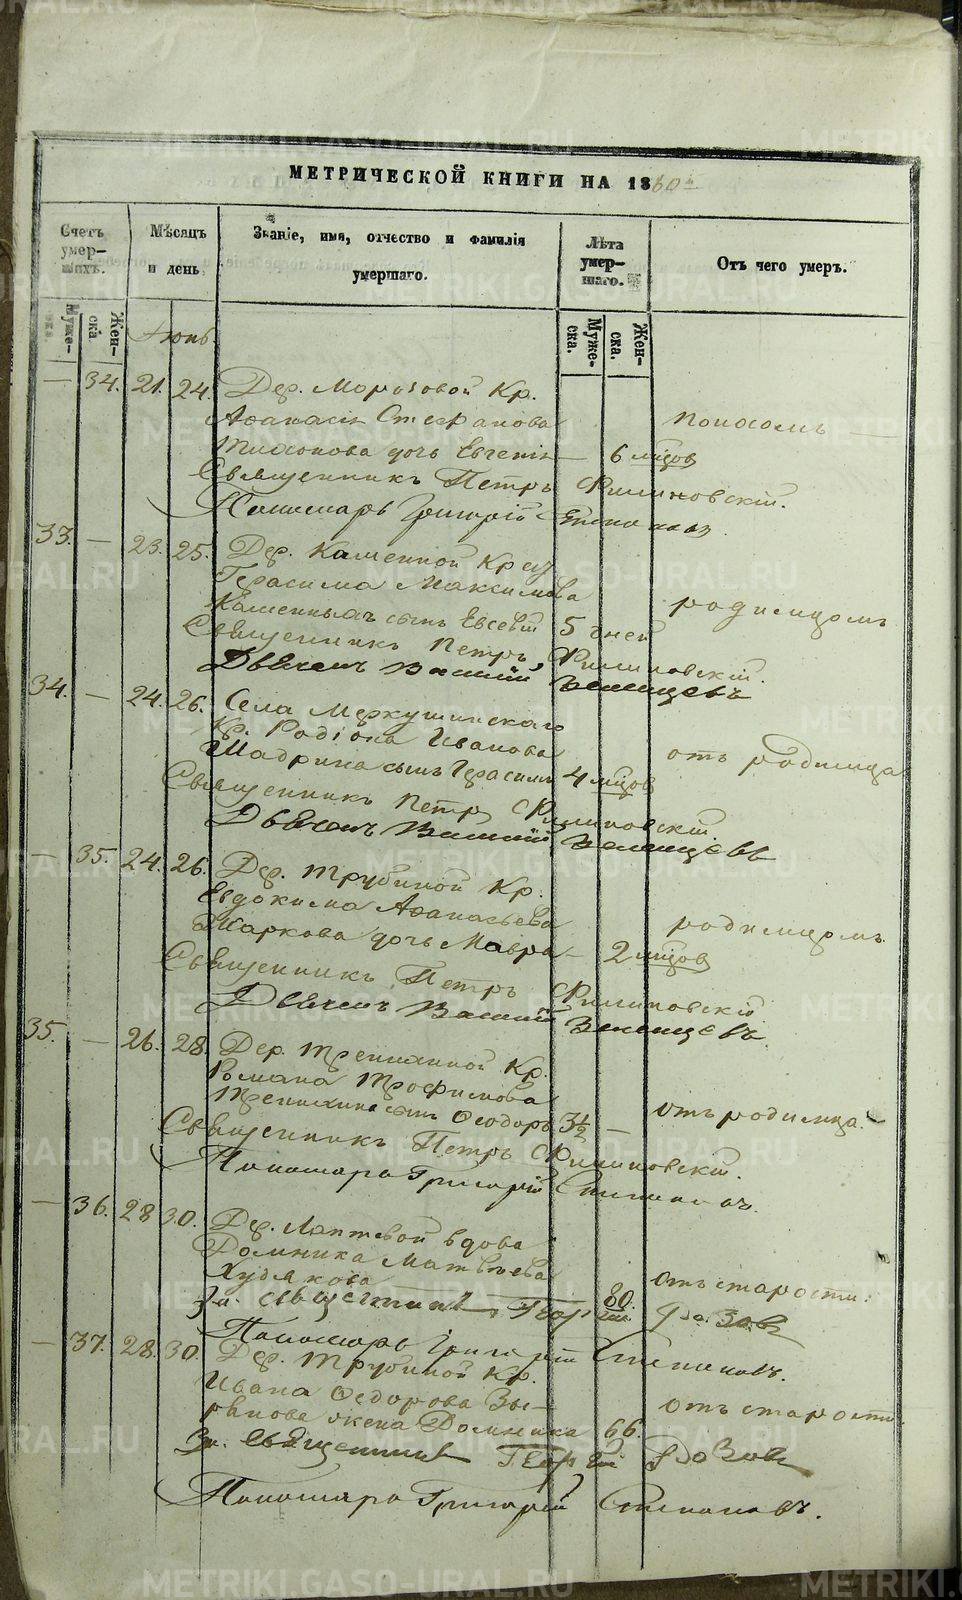 МЕТРИЧЕСКОЙ КНИГИ НА 1860 г.
Счетъ умер-шихъ.
Мѣсяцъ и день.
Званіе, имя, отчество и фамилія умершаго.
Лѣта умер-шаго.
Отъ чего умеръ.
Муже-ска.
Жен-ска.
Іюнь.
Муже-ска.
Жен-ска.
— 34. 21. 24. Дер. Морозовой Кр.
Аѳанасія Стефанова поносомъ
Тихонова дочь Евгенія — 6 мцов
Священникъ Петръ Филиповскій.
Пономарь Григорій Степановъ.
33. — 23. 25. Дер. Каменной Кр.
Герасима Максимова родимцомъ
Каменныхъ сынъ Евсевій 5 дней
Священникъ Петръ Филиповскій.
Дьячекъ Василій
34. — 24. 26. Села Меркушинскаго
Кр. Родіона Иванова отъ родимца
Шадрина сынъ Герасимъ 4 мцов
Священникъ Петръ Филиповскій.
Дьячекъ Василій
— 35. 24. 26. Дер. Трубиной Кр.
Евдокима Аѳанасьева родимцомъ
Маркова дочь Мавра — 2 мцов
Священникъ Петръ Филиповскій
Дьячекъ Василій
35. — 26. 28. Дер. Трепихиной Кр.
Романа Трофимова отъ родимца.
Трепихина сынъ Ѳеодоръ 3½ —
Священникъ Петръ Филиповскій.
Пономарь Григорій Степановъ.
— 36. 28 30. Дер. Лаптевой вдова
Домника Матвѣева отъ старости.
Худякова 80.
За. Священникъ Георгій
Пономарь Григорій Степановъ.
— 37. 28. 30. Дер. Трубиной Кр.
Ивана Ѳедорова отъ старости.
жена Домника 66.
За. Священникъ Георгій
Пономарь Григорій Степановъ.
METRIKI.GASO-URAL.RU